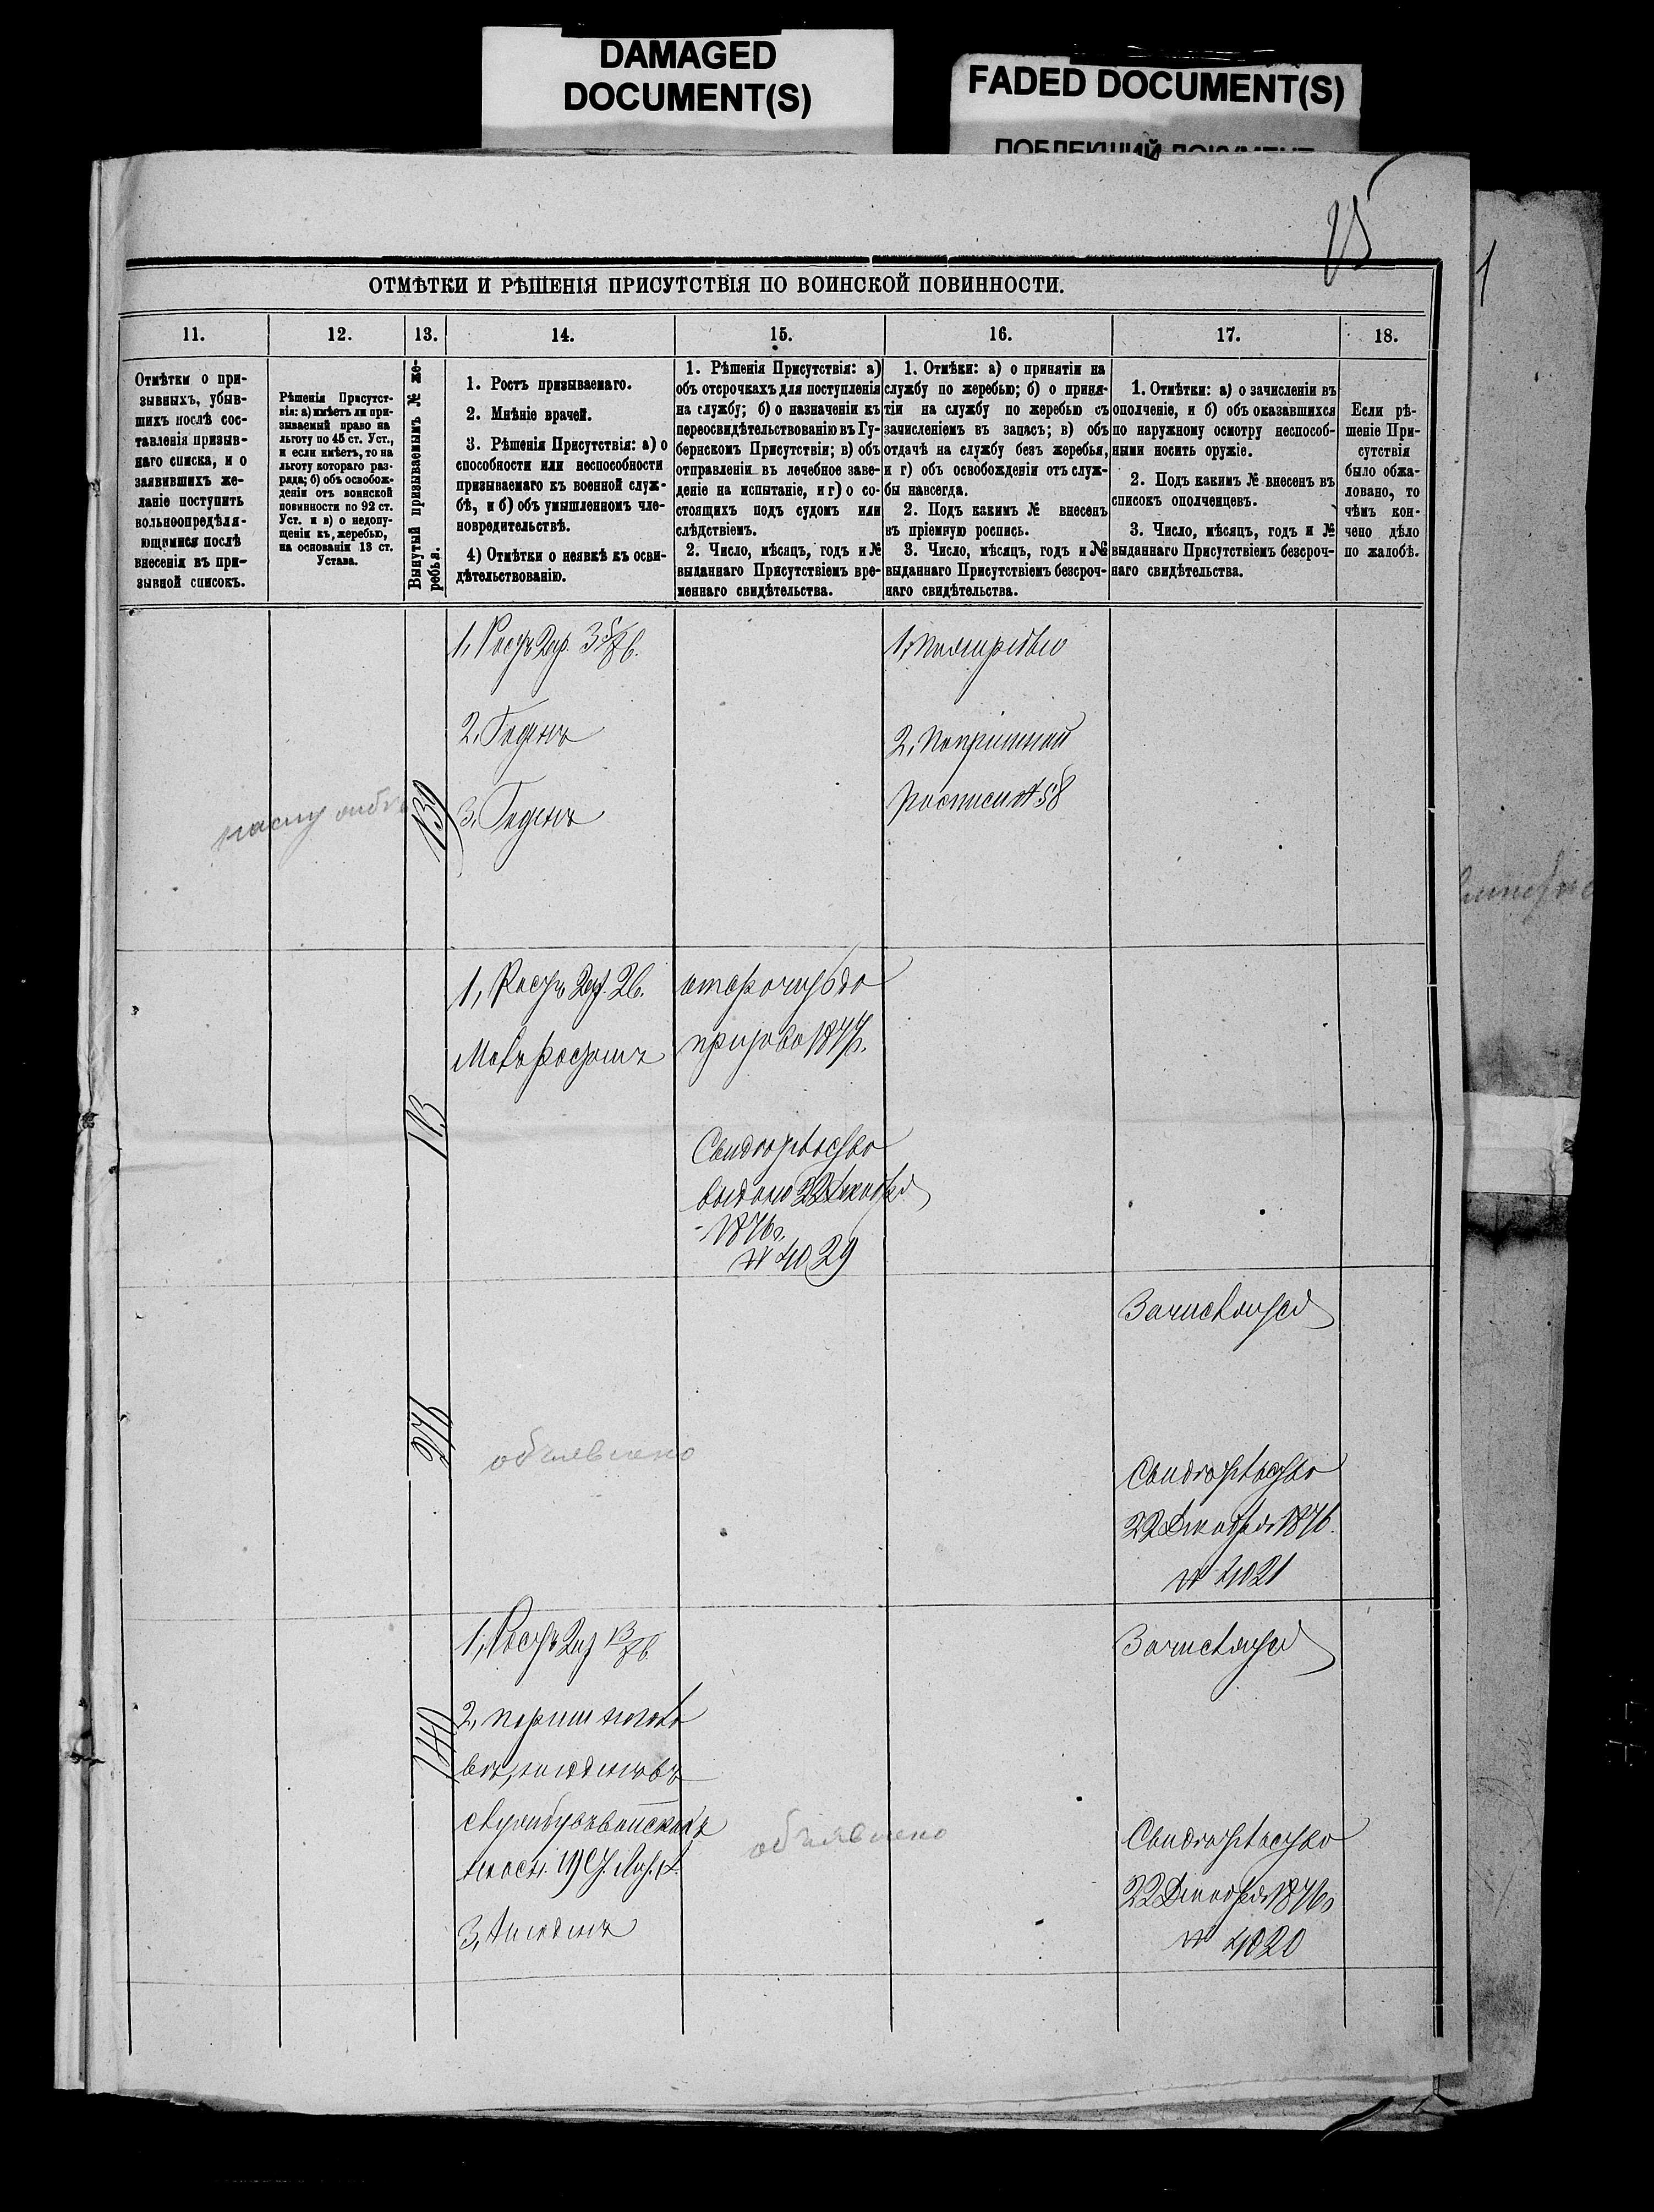 DAMAGED
DOCUMENT(S)
FADED DOCUMENT(S)
ПОБЛЕКШИЙ ДОКУМЕНТ
1
ОТМѢТКИ И РѢШЕНІЯ ПРИСУТСТВІЯ ПО ВОИНСКОЙ ПОВИННОСТИ.
11.
12.
13.
14.
15.
16.
17.
18.
Отмѣтки о при-
зывныхъ, убыв-
шихъ послѣ сос-
тавленія призыв-
наго списка, и о
заявившихъ же-
ланіе поступить
вольноопредѣля-
ющимися послѣ
внесенія въ при-
зывной списокъ.
Рѣшенія Присутст-
вія: а) имѣетъ ли при-
зываемый право на
льготу по 45 ст. Уст.,
и если имѣетъ, то на
льготу котораго раз-
ряда; б) объ освобож-
деніи отъ воинской
повинности по 92 ст.
Уст. и в) о недопу-
щеніи къ жеребью,
на основаніи 13 ст.
Устава.
Вынутый призываемымъ № же-
ребья.
1. Ростъ призываемаго.
2. Мнѣніе врачей.
3. Рѣшенія Присутствія: а) о
способности или неспособности
призываемаго къ военной служ-
бѣ, и б) объ умышленномъ чле-
новредительствѣ.
4) Отмѣтки о неявкѣ къ осви-
дѣтельствованію.
1. Рѣшенія Присутствія: а)
объ отсрочкахъ для поступленія
на службу; б) о назначеніи къ
переосвидѣтельствованію въ Гу-
бернскомъ Присутствіи; в) объ
отправленіи въ лечебное заве-
деніе на испытаніе, и г) о со-
стоящихъ подъ судомъ или
слѣдствіемъ.
2. Число, мѣсяцъ, годъ и №
выданнаго Присутствіемъ вре-
меннаго свидѣтельства.
1. Отмѣки: а) о принятіи на
службу по жеребью; б) о приня-
тіи на службу по жеребью съ
зачисленіемъ въ запасъ; в) объ
отдачѣ на службу безъ жеребья,
и г) объ освобожденіи отъ служ-
бы навсегда.
2. Подъ какимъ № внесенъ
въ пріемную роспись.
3. Число, мѣсяцъ, годъ и №
выданнаго Присутствіемъ безсроч-
наго свидѣтельства.
1. Отмѣтки: а) о зачисленіи въ
ополченіе, и б) объ оказавшихся
по наружному осмотру неспособ-
ными носить оружіе.
2. Подъ какимъ № внесенъ въ
списокъ ополченцевъ.
3. Число, мѣсяцъ, годъ и №
выданнаго Присутствіемъ безсроч-
наго свидѣтельства.
Если рѣ-
шеніе При-
сутствія
было обжа-
ловано, то
чѣмъ кон-
чено дѣло
по жалобѣ.
139
1, Ростъ 2ар. 3 5/8 в.
2, Годенъ
3, Годенъ
1, По жеребью
2, По пріемной
росписи № 58
113
1, Ростъ 2ар. 2в.
Малъ ростомъ
отсрочить до
призыва 1877г.
Свидѣтельство
выдано 22 Декабря
1876г.
№ 4029
276
объявлено
Зачисляется
Свидѣтельство
22 Декабря 1876.
№ 4021
140
1, Ростъ 2ар
2,
3, Негоденъ
объявлено
Зачисляется
Свидѣтельство
22 Декабря 1876г
№ 4020